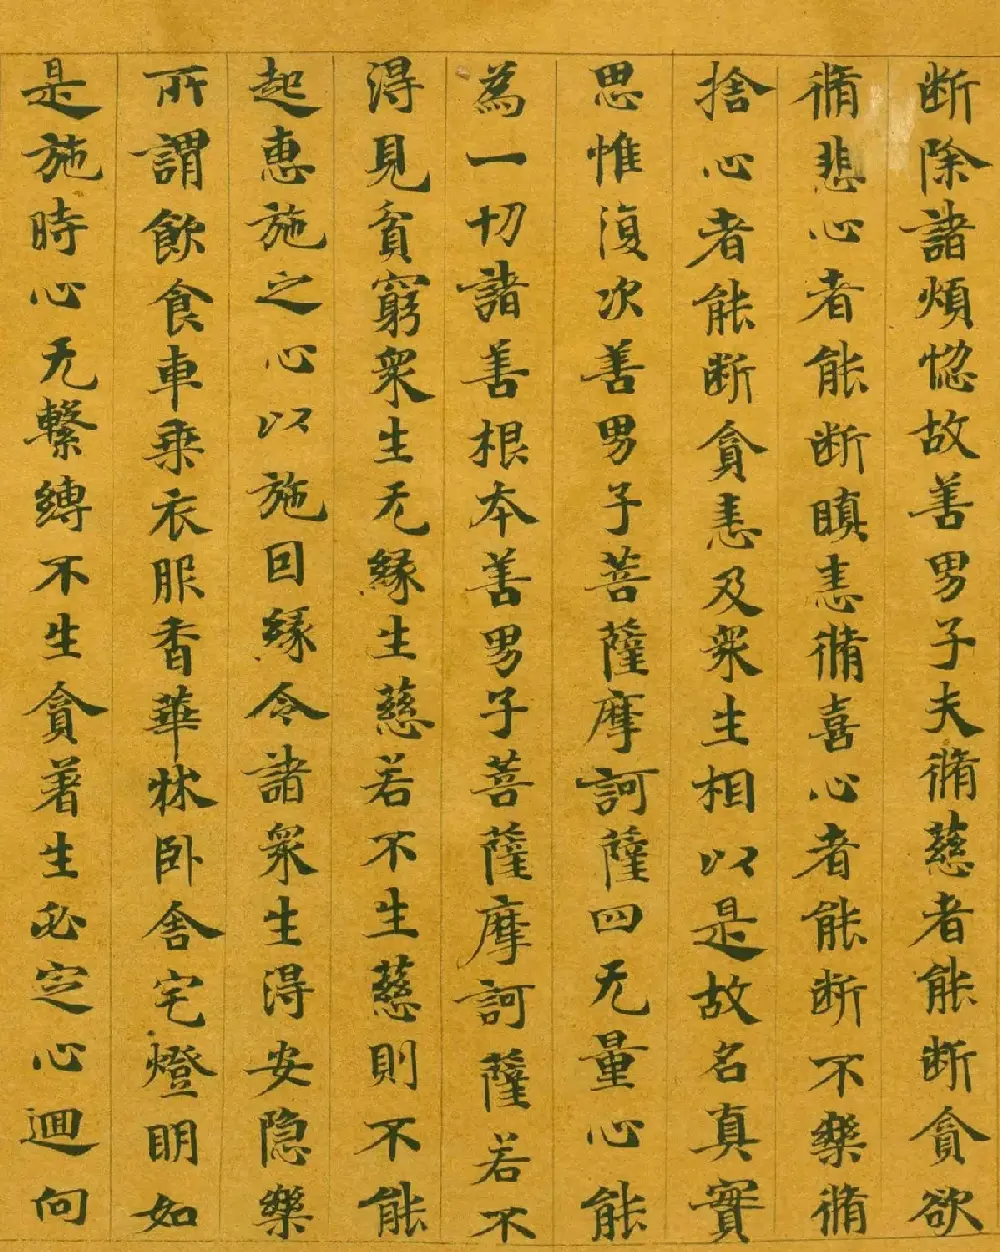 断除諸煩惚故善男子夫脩慈者能断貪欲
脩悲心者能断瞋恚脩喜心者能断不樂脩
捨心者能断貪恚及衆生相以是故名真實
思惟復次善男子菩薩摩訶薩四无量心能
為一切諸善根本善男子菩薩摩訶薩若不
得見貧窮衆生无緣生慈若不生慈則不能
起惠施之心以施因緣令諸衆生得安隱樂
所謂飲食車乗衣服香華牀卧舎宅燈明如
是施時心无繫縛不生貪著生必定心迴向